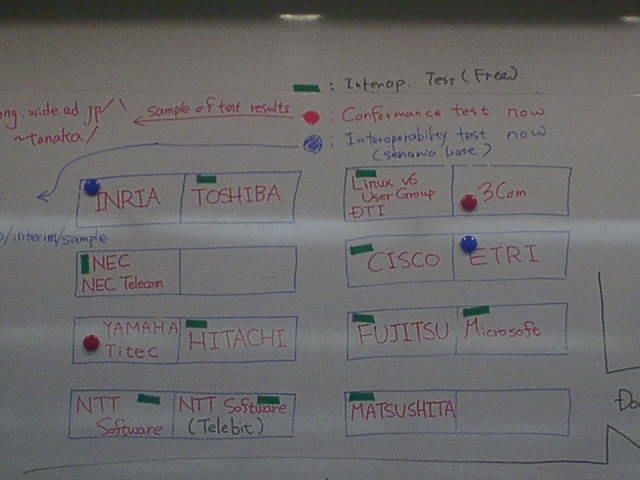 : Interop. Test (Free)
ong.wide.ad.jp/\
~tanaka/
sample of test results
: Conformance test now
: Interoperability test now
(senario base)
INRIA TOSHIBA
Linux v6
User Group
DTI
3Com
/interim/sample
NEC
NEC Telecom
CISCO ETRI
YAMAHA
Titec
HITACHI
FUJITSU Microsoft
NTT
Software
NTT Software
(Telebit)
MATSUSHITA